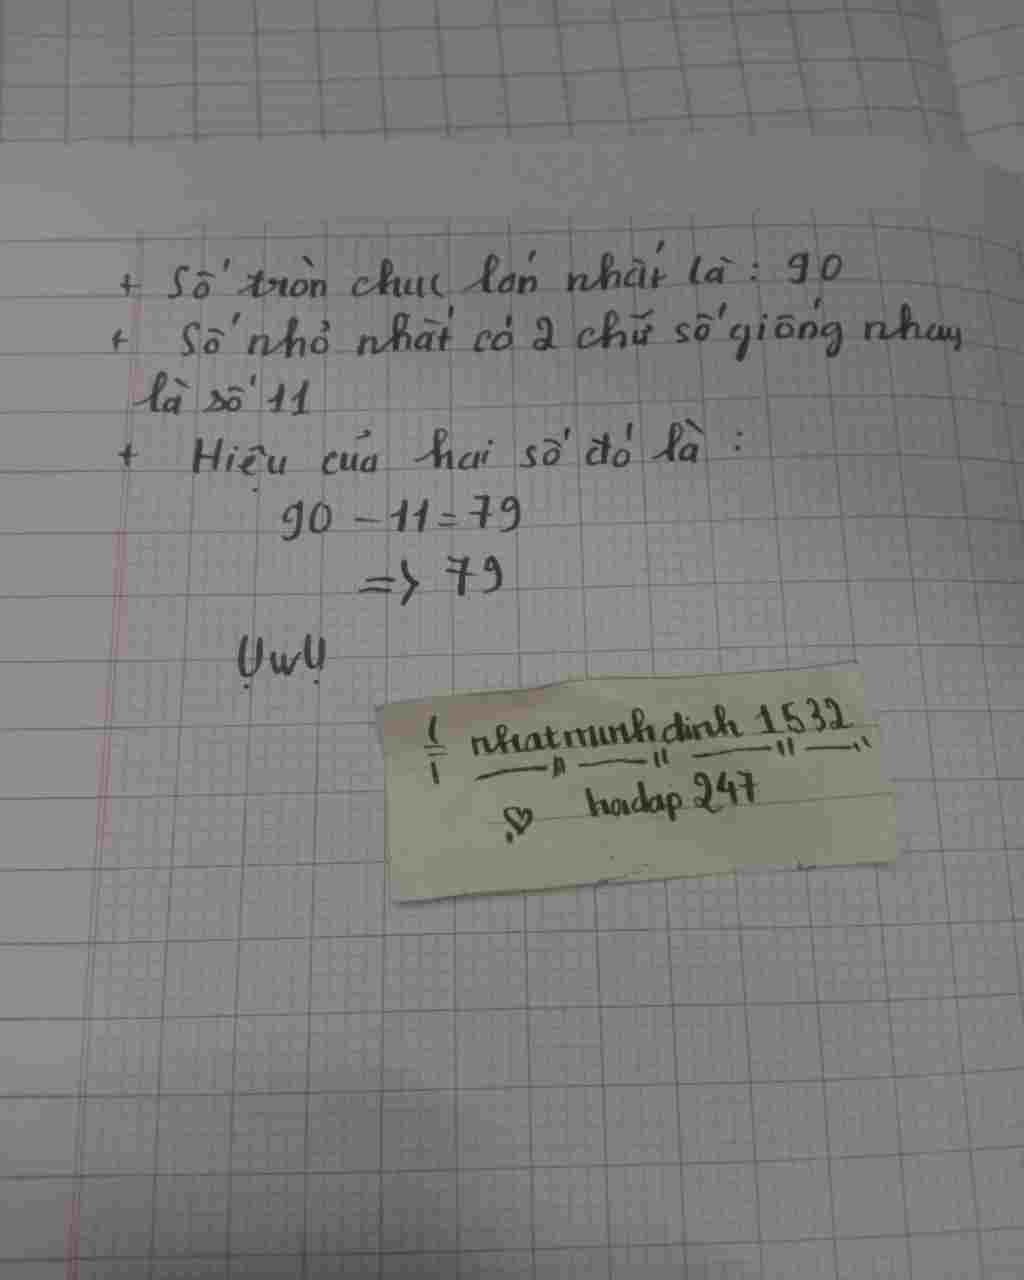 + Số tròn chuc lớn nhất là : 90
+ Số nhỏ nhất có 2 chữ số giống nhau
là số 11
+ Hiệu của hai số đó là :
90 - 11 = 79
=> 79
ỤwỤ
nhatminhdinh 1532
hoidap 247